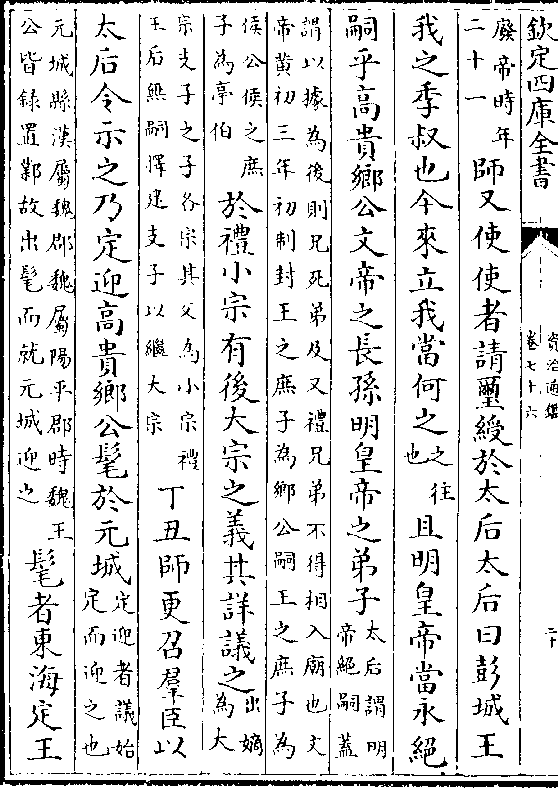 欽定四庫全書
資治通鑑
卷七十六
二十
廢帝時年
二十一
師又使使者請璽綬於太后太后曰彭城王
我之季叔也今來立我當何之
之往
也
且明皇帝當永絕
嗣乎高貴鄉公文帝之長孫明皇帝之弟子
太后謂明
帝絕嗣蓋
謂以據為後則兄死弟及又禮兄弟不得相入廟也文
帝黃初三年初制封王之庶子為鄉公嗣王之庶子為
侯公侯之庶
子為亭伯
於禮小宗有後大宗之義其詳議之
出嫡
為大
宗支子之子各宗其父為小宗禮
王后無嗣擇建支子以繼大宗
丁丑師更召羣臣以
太后令示之乃定迎高貴鄉公髦於元城
定迎者議始
定而迎之也
元城縣漢屬魏郡魏屬陽平郡時魏王
公皆錄置鄴故出髦而就元城迎之
髦者東海定王